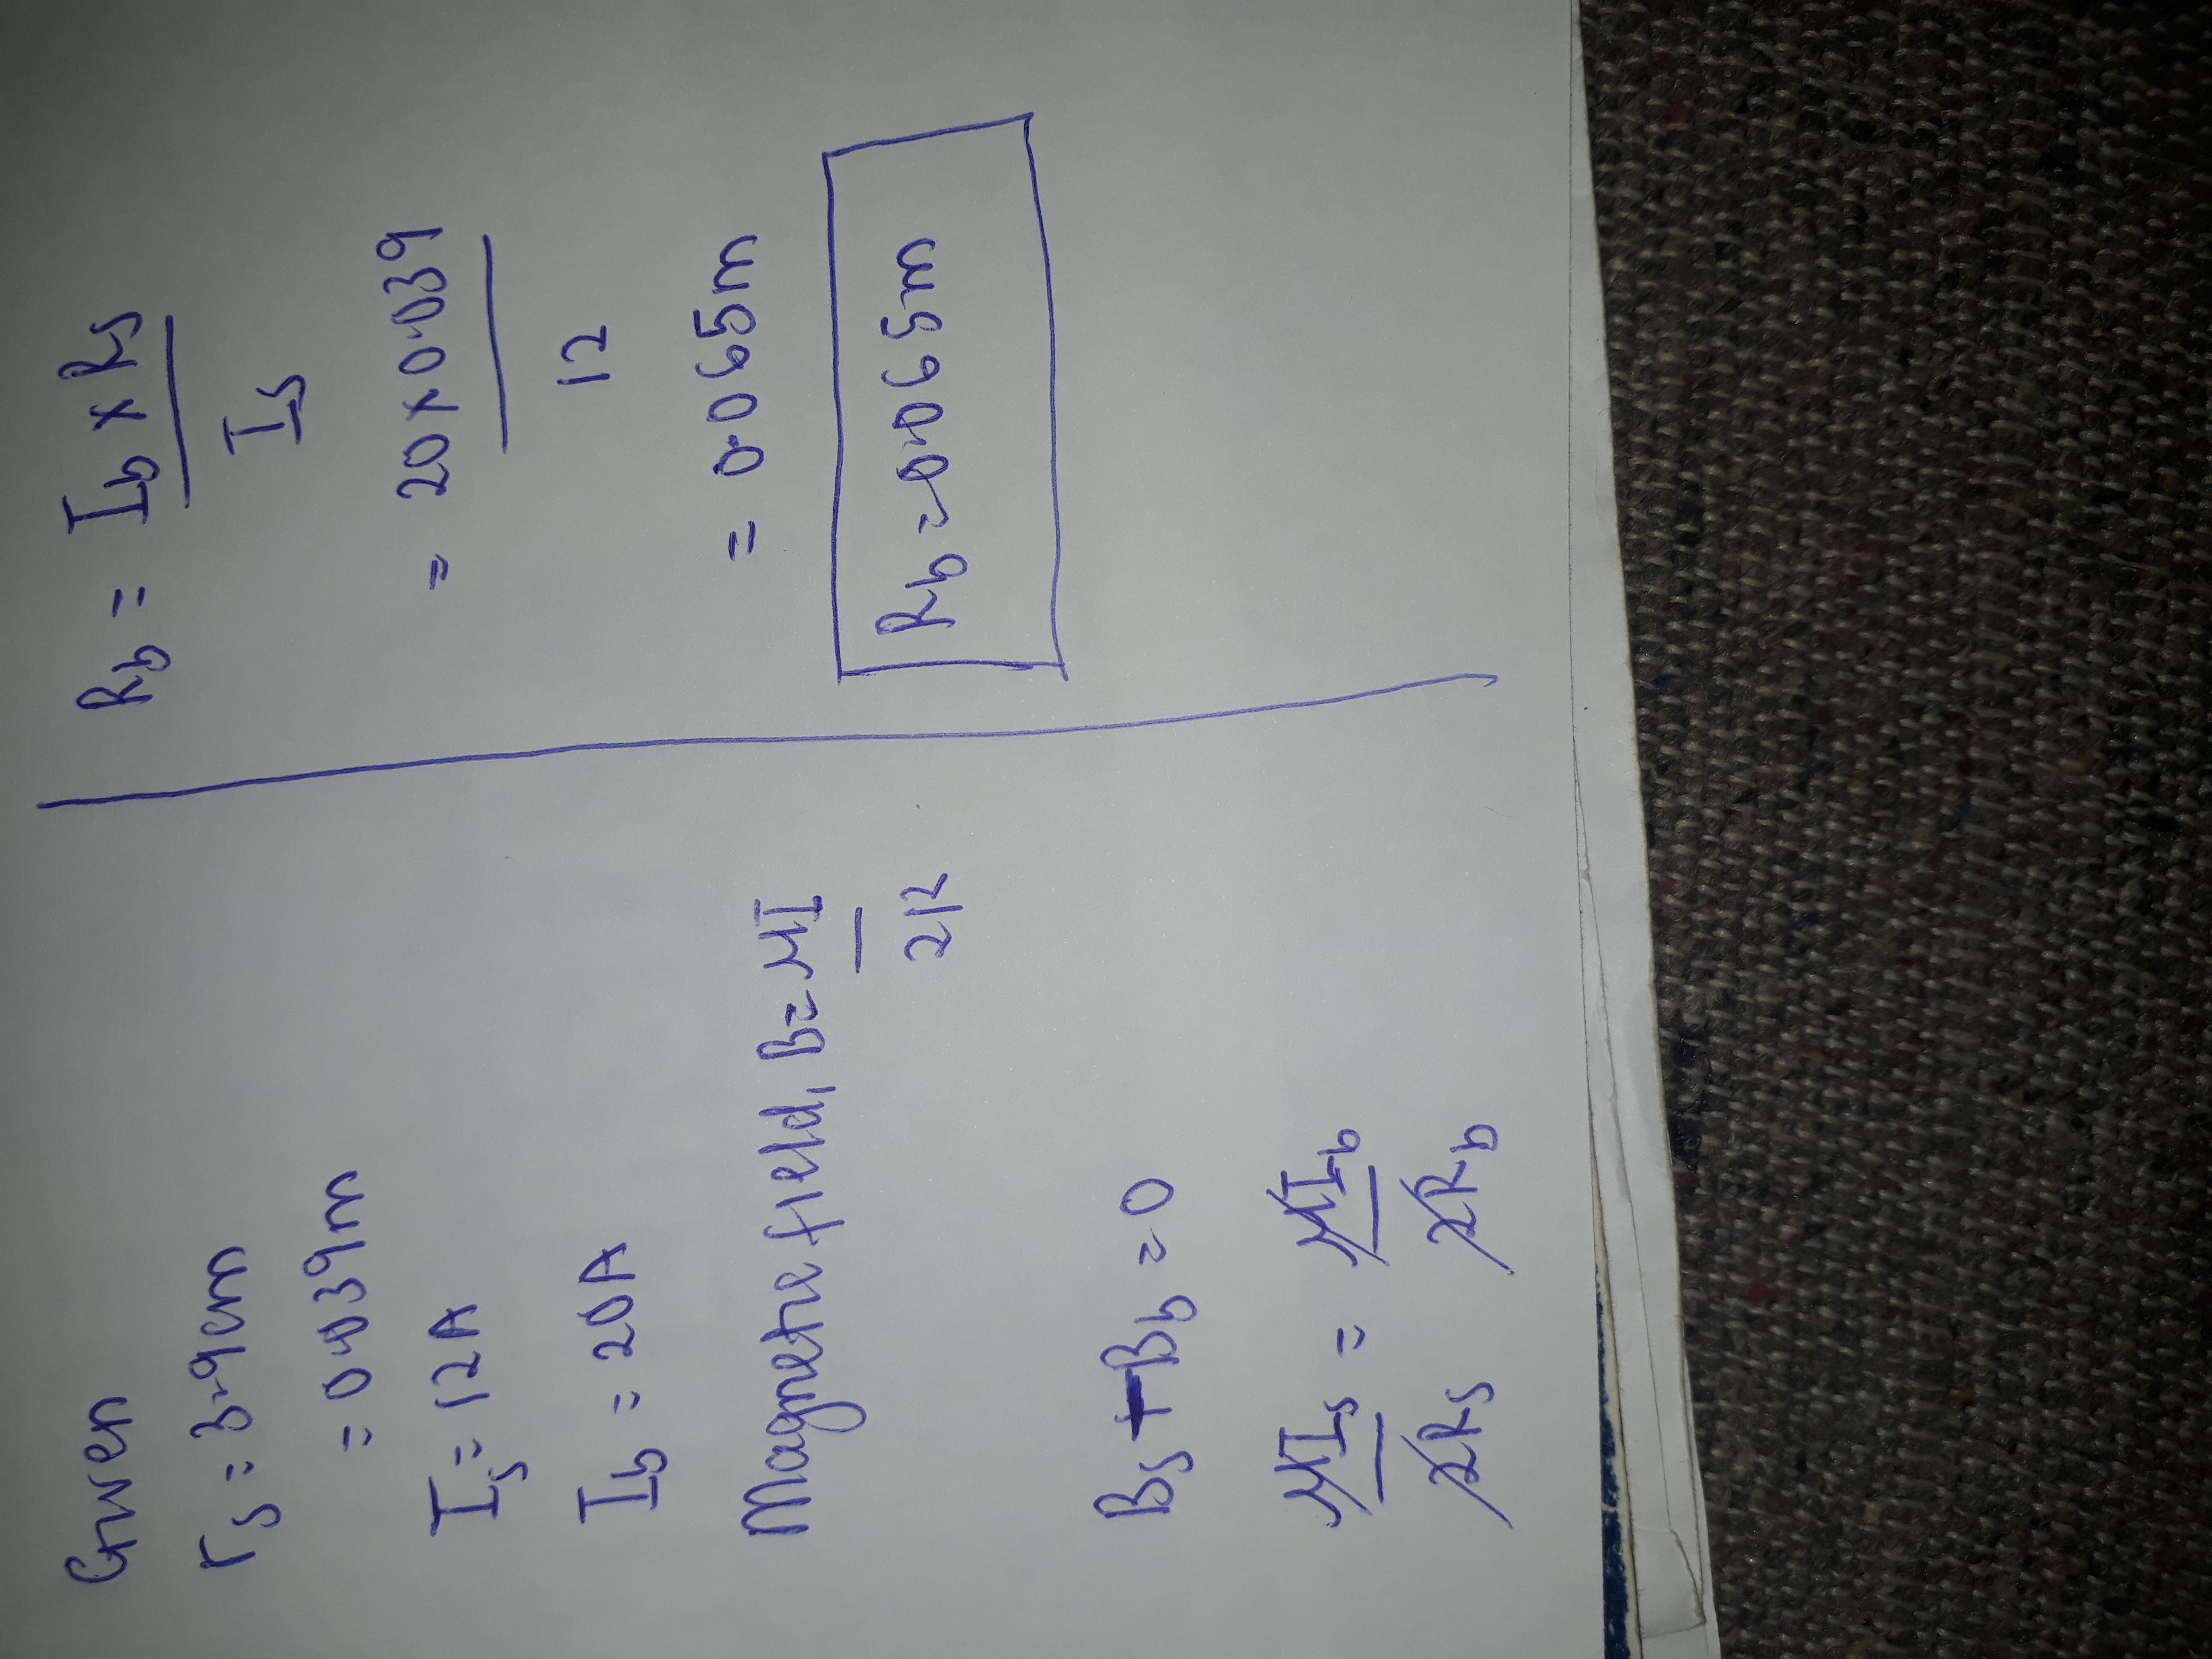 Given
rs = 3.9cm
= 0.039m
Is = 12A
Ib = 20A
Magnetic field, B = μI
2R
Bs + Bb = 0
μIs = μIb
2Rs 2Rb
Rb = Ib x Rs
Is
= 20 x 0.039
12
= 0.065m
Rb = 0.065m